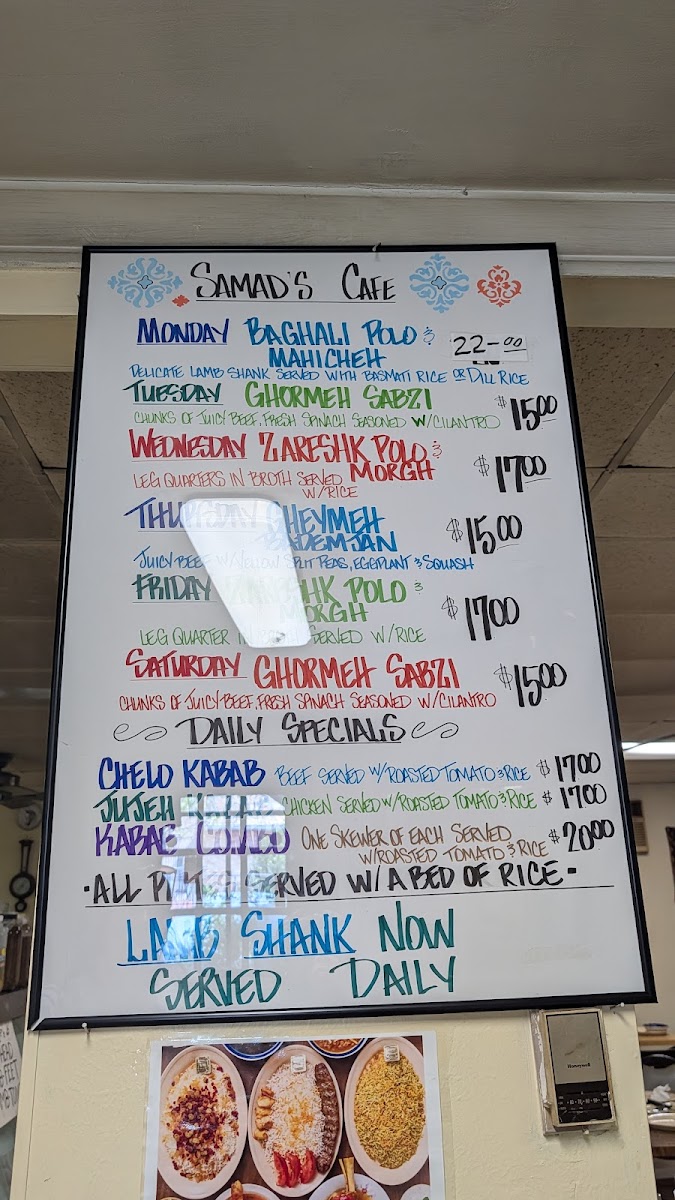 SAMAD'S CAFE
MONDAY BAGHALI POLO & 22-00
MAHICHEH
DELICATE LAMB SHANK SERVED WITH BASMATI RICE OR DILL RICE
TUESDAY GHORMEH SABZI $1500
CHUNKS OF JUICY BEEF, FRESH SPINACH SEASONED W/CILANTRO
WEDNESDAY ZARESHK POLO &
MORGH $1700
LEG QUARTERS IN BROTH SERVED
W/RICE
THURSDAY GHEYMEH $1500
BADEMJAN
JUICY BEEF W/YELLOW SPLIT PEAS, EGGPLANT & SQUASH
FRIDAY POLO &
MORGH $1700
LEG QUARTER SERVED W/RICE
SATURDAY GHORMEH SABZI $1500
CHUNKS OF JUICY BEEF, FRESH SPINACH SEASONED W/CILANTRO
DAILY SPECIALS
CHELO KABAB BEEF SERVED W/ROASTED TOMATO & RICE $1700
JUJEH KABAB CHICKEN SERVED W/ROASTED TOMATO & RICE $1700
KABAB COMBO ONE SKEWER OF EACH SERVED $2000
W/ROASTED TOMATO & RICE
•ALL PLATES SERVED W/A BED OF RICE•
LAMB SHANK NOW
SERVED DAILY
Honeywell